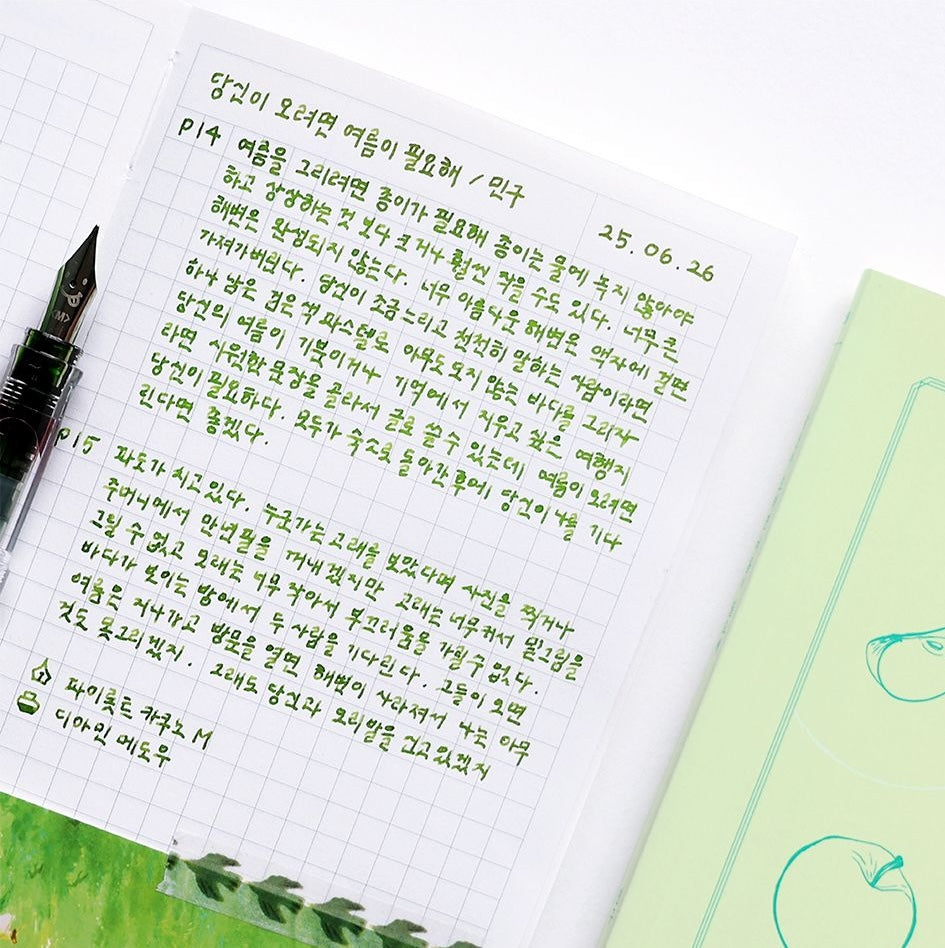 당신이 오려면 여름이 필요해 / 민구
25. 06. 26
p14 여름을 그리려면 종이가 필요해 종이는 물에 녹지 않아야
하고 상상하는 것 보다 크거나 훨씬 작을 수도 있다. 너무 큰
해변은 완성되지 않는다. 너무 아름다운 해변은 액자에 걸면
가져가버린다. 당신이 조금 느리고 천천히 말하는 사람이라면
하나 남은 검은색 파스텔로 아무도 오지 않는 바다를 그리자
당신의 여름이 기분이거나 기억에서 지우고 싶은 여행지
라면 시원한 문장을 골라서 글로 쓸 수 있는데 여름이 오려면
당신이 필요하다. 모두가 숙소로 돌아간 후에 당신이 나를 기다
린다면 좋겠다.
p15 파도가 치고 있다. 누군가는 고래를 보았다며 사진을 찍거나
주머니에서 만년필을 꺼내겠지만 고래는 너무 커서 밑그림을
그릴 수 없고 모래는 너무 작아서 부끄러움을 가릴 수 없다.
바다가 보이는 방에서 두 사람을 기다린다. 그들이 오면
여름은 지나가고 방문을 열면 해변이 사라져서 나는 아무
것도 못 그리겠지. 그래도 당신과 오리발을 신고 있겠지
파이롯트 카쿠노 M
디아민 메도우
<M>